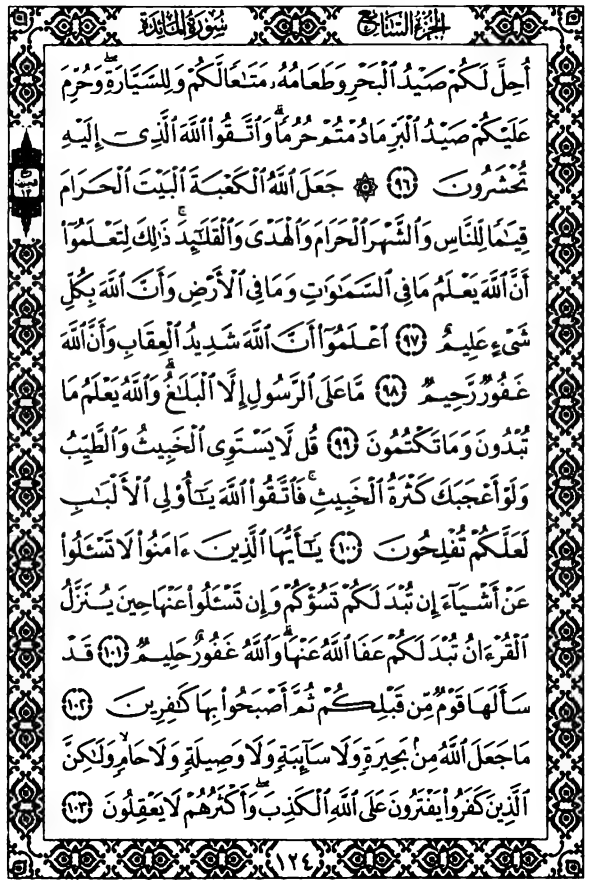 الجزء السابع سورة المائدة
أُحِلَّ لَكُمْ صَيْدُ ٱلْبَحْرِ وَطَعَامُهُۥ مَتَٰعًا لَّكُمْ وَلِلسَّيَّارَةِۖ وَحُرِّمَ
عَلَيْكُمْ صَيْدُ ٱلْبَرِّ مَا دُمْتُمْ حُرُمًاۗ وَٱتَّقُوا۟ ٱللَّهَ ٱلَّذِىٓ إِلَيْهِ
تُحْشَرُونَ ٩٦ ۞ جَعَلَ ٱللَّهُ ٱلْكَعْبَةَ ٱلْبَيْتَ ٱلْحَرَامَ
قِيَٰمًا لِّلنَّاسِ وَٱلشَّهْرَ ٱلْحَرَامَ وَٱلْهَدْىَ وَٱلْقَلَٰٓئِدَۚ ذَٰلِكَ لِتَعْلَمُوٓا۟
أَنَّ ٱللَّهَ يَعْلَمُ مَا فِى ٱلسَّمَٰوَٰتِ وَمَا فِى ٱلْأَرْضِ وَأَنَّ ٱللَّهَ بِكُلِّ
شَىْءٍ عَلِيمٌ ٩٧ ٱعْلَمُوٓا۟ أَنَّ ٱللَّهَ شَدِيدُ ٱلْعِقَابِ وَأَنَّ ٱللَّهَ
غَفُورٌ رَّحِيمٌ ٩٨ مَّا عَلَى ٱلرَّسُولِ إِلَّا ٱلْبَلَٰغُۗ وَٱللَّهُ يَعْلَمُ مَا
تُبْدُونَ وَمَا تَكْتُمُونَ ٩٩ قُل لَّا يَسْتَوِى ٱلْخَبِيثُ وَٱلطَّيِّبُ
وَلَوْ أَعْجَبَكَ كَثْرَةُ ٱلْخَبِيثِۚ فَٱتَّقُوا۟ ٱللَّهَ يَٰٓأُو۟لِى ٱلْأَلْبَٰبِ
لَعَلَّكُمْ تُفْلِحُونَ ١٠٠ يَٰٓأَيُّهَا ٱلَّذِينَ ءَامَنُوا۟ لَا تَسْـَٔلُوا۟
عَنْ أَشْيَآءَ إِن تُبْدَ لَكُمْ تَسُؤْكُمْ وَإِن تَسْـَٔلُوا۟ عَنْهَا حِينَ يُنَزَّلُ
ٱلْقُرْءَانُ تُبْدَ لَكُمْ عَفَا ٱللَّهُ عَنْهَاۗ وَٱللَّهُ غَفُورٌ حَلِيمٌ ١٠١ قَدْ
سَأَلَهَا قَوْمٌ مِّن قَبْلِكُمْ ثُمَّ أَصْبَحُوا۟ بِهَا كَٰفِرِينَ ١٠٢
مَا جَعَلَ ٱللَّهُ مِنۢ بَحِيرَةٍ وَلَا سَآئِبَةٍ وَلَا وَصِيلَةٍ وَلَا حَامٍۙ وَلَٰكِنَّ
ٱلَّذِينَ كَفَرُوا۟ يَفْتَرُونَ عَلَى ٱللَّهِ ٱلْكَذِبَۖ وَأَكْثَرُهُمْ لَا يَعْقِلُونَ ١٠٣
١٢٤